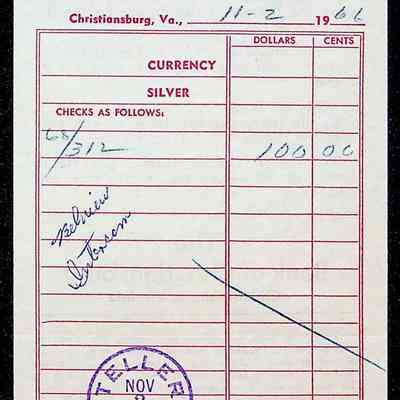 Christiansburg, Va., 11-2 1966
DOLLARS CENTS
CURRENCY
SILVER
CHECKS AS FOLLOWS:
68/312 100 00
TELLER
NOV